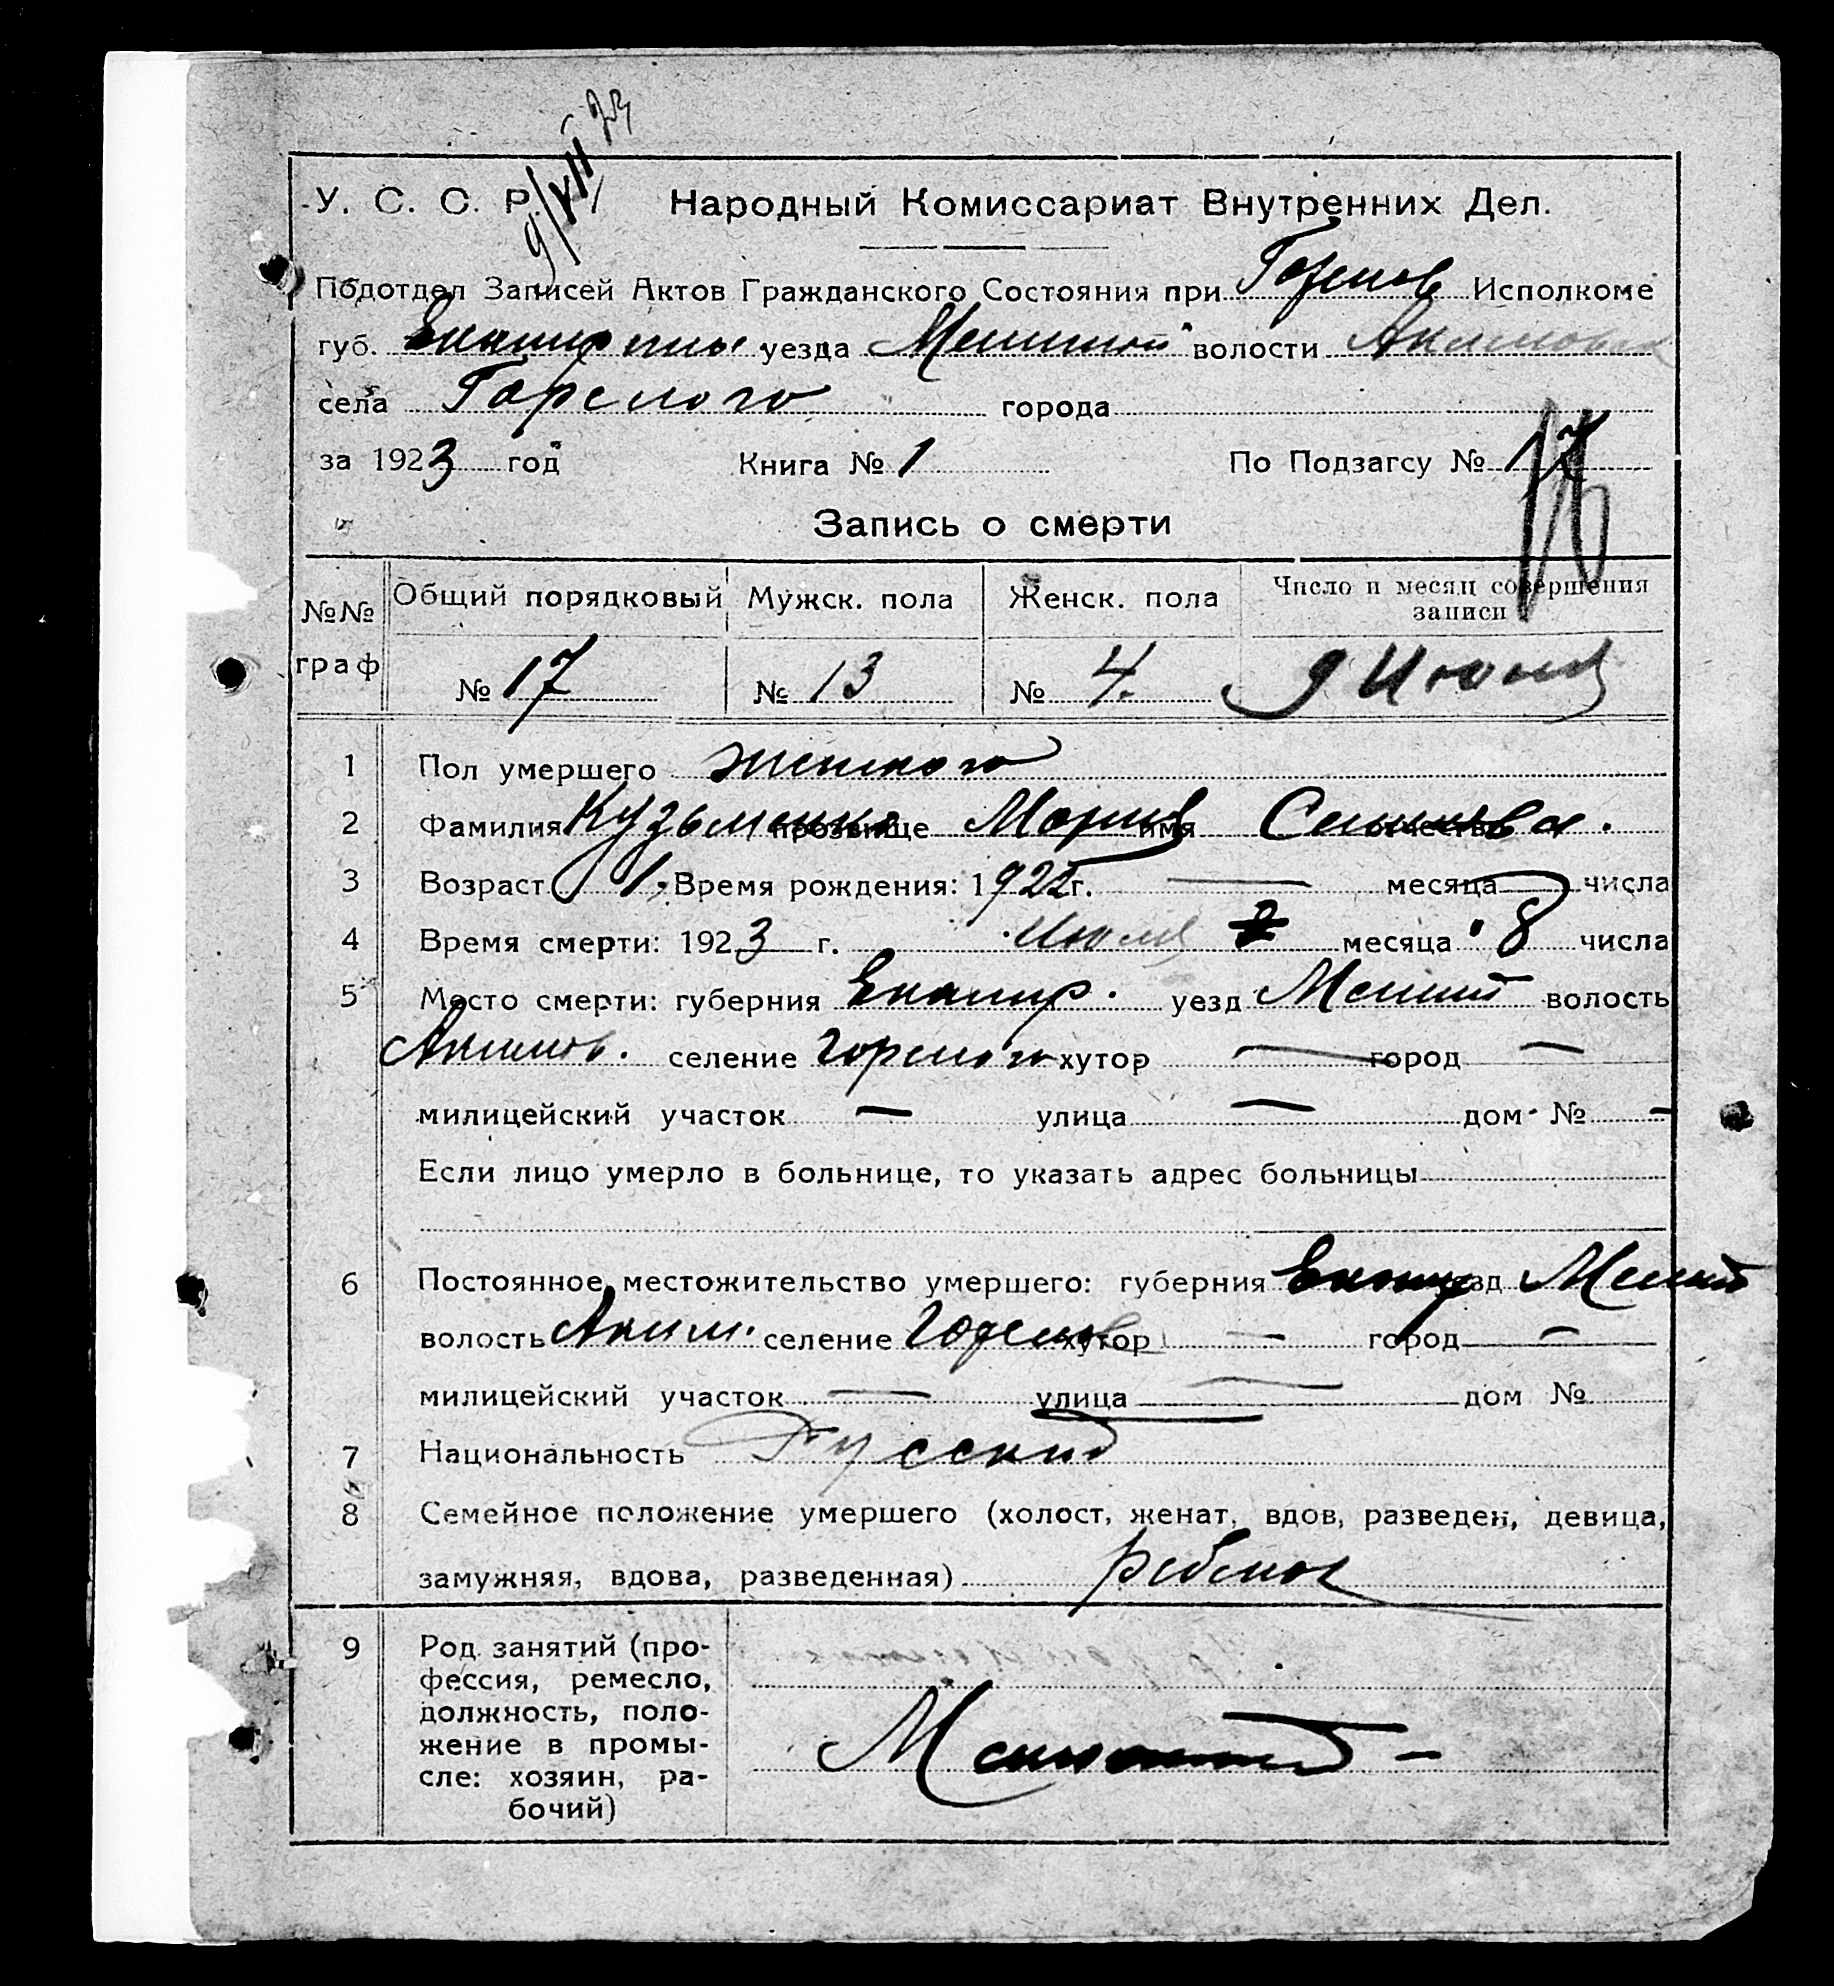 9/VII 23
У. С. С. Р. Народный Комиссариат Внутренних Дел.
Подотдел Записей Актов Гражданского Состояния при Горелов Исполкоме
губ. уезда волости
села Горелого города
за 1923 год Книга № 1 По Подзагсу № 17
Запись о смерти
№№ граф Общий порядковый Мужск. пола Женск. пола Число и месяц совершения записи
№ 17 № 13 № 4. 9 Июля
1 Пол умершего женского
2 Фамилия Кузьменко прозвище Мария имя отчество
3 Возраст 1. Время рождения: 1922 г. — месяца числа
4 Время смерти: 1923 г. Июля месяца 8 числа
5 Место смерти: губерния Екатер. уезд Мелит волость
Акимов. селение Горелого хутор — город —
милицейский участок — улица — дом № —
Если лицо умерло в больнице, то указать адрес больницы
6 Постоянное местожительство умершего: губерния Екатер уезд Мелит
волость Аким. селение Горелов хутор — город —
милицейский участок — улица — дом №
7 Национальность Русский
8 Семейное положение умершего (холост, женат, вдов, разведен, девица,
замужняя, вдова, разведенная) ребенок
9 Род занятий (про-
фессия, ремесло,
должность, поло-
жение в промы-
сле: хозяин, ра-
бочий)